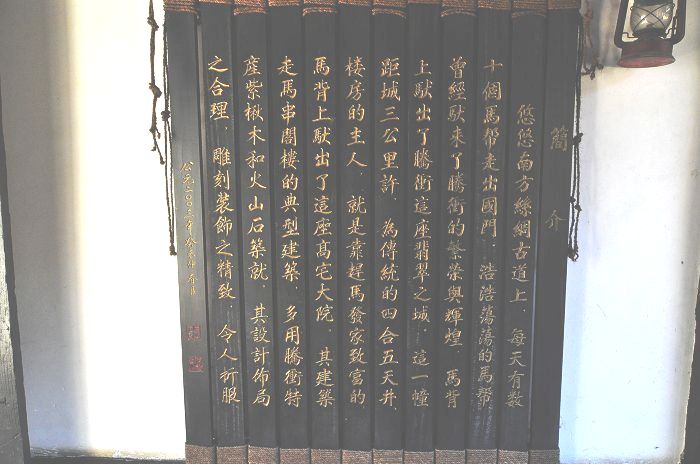 簡介
悠悠南方絲綢古道上，每天有數
十個馬帮走出國門，浩浩蕩蕩的馬帮
曾經馱来了騰衝的繁荣與輝煌，馬背
上馱出了騰衝這座翡翠之城，這一幢
距城三公里許，為傳統的四合五天井，
楼房的主人，就是靠趕馬發家致富的
馬背上馱出了這座髙宅大院，其建築
走馬串閣樓的典型建築，多用騰衝特
產紫楸木和火山石築就，其設計佈局
之合理，雕刻装飾之精致，令人折服
公元二〇〇三年